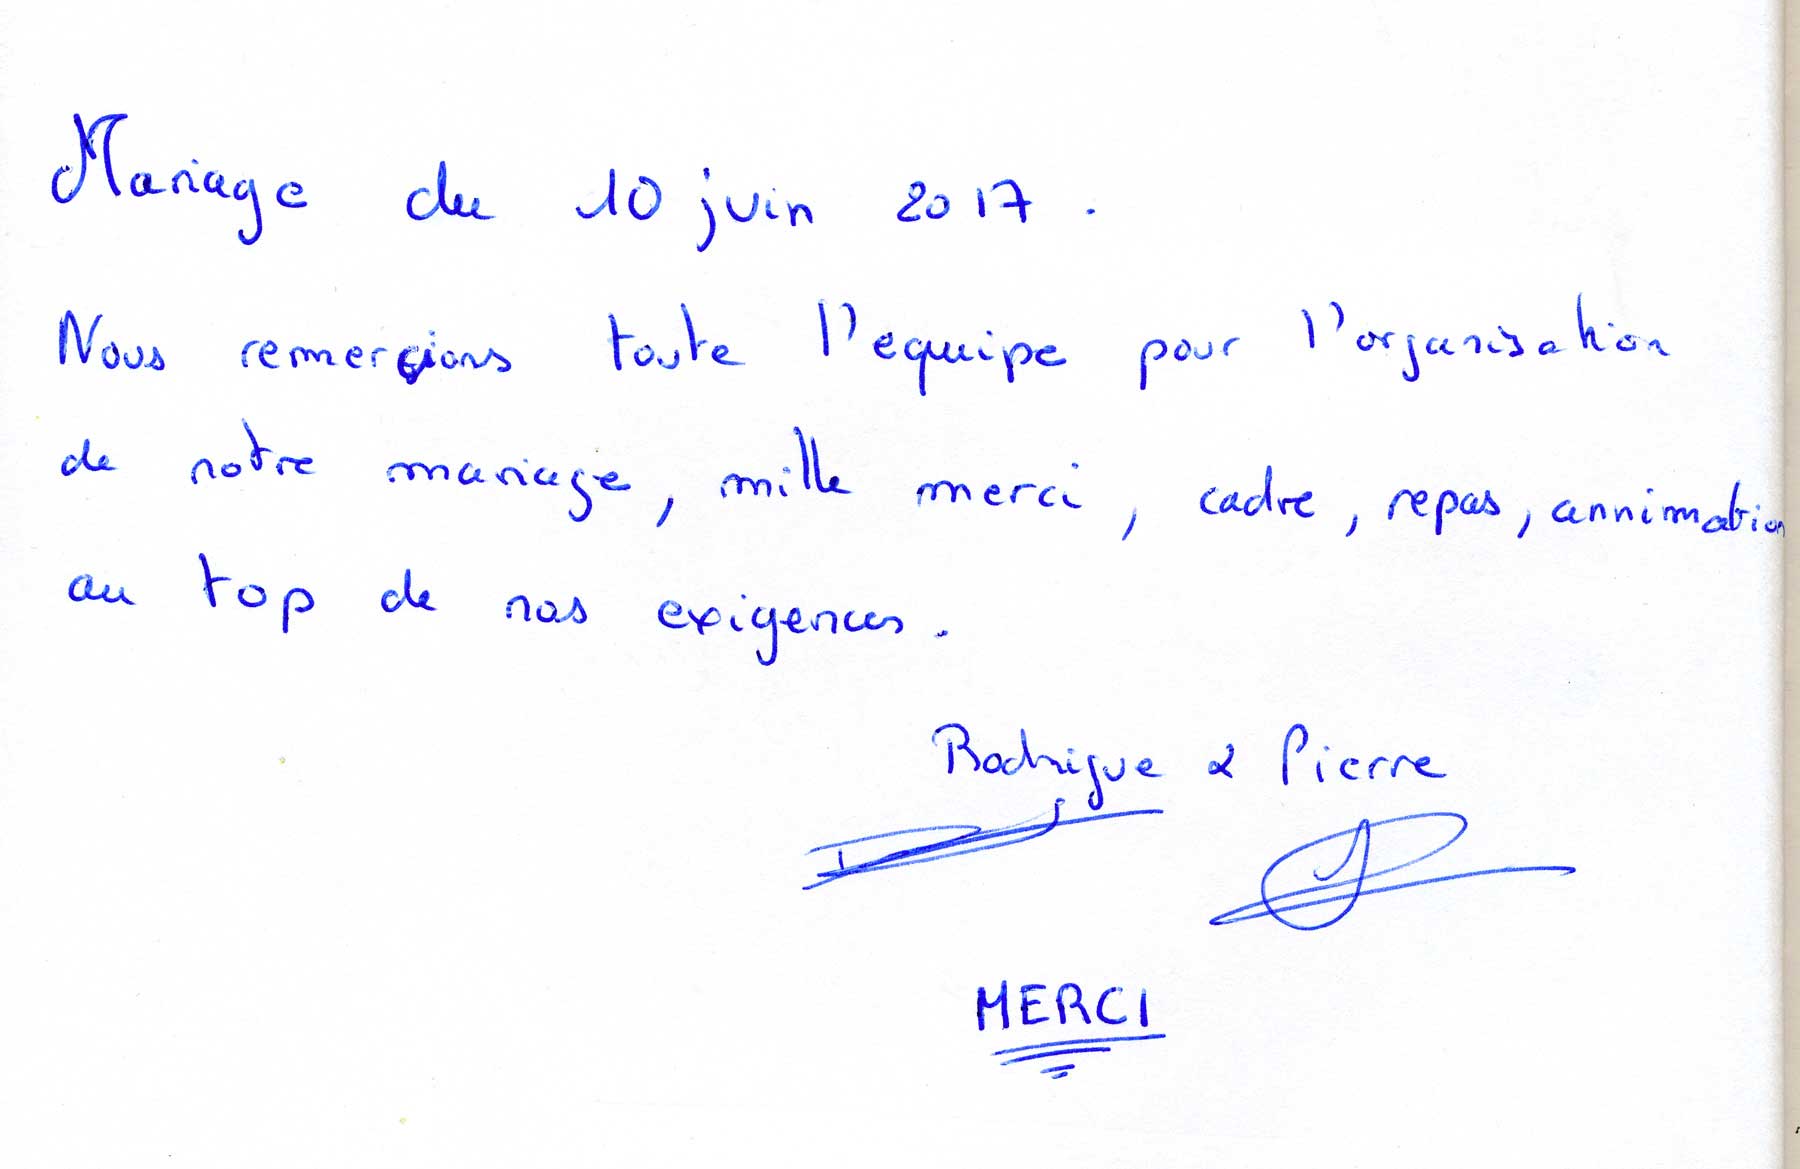 Mariage du 10 juin 2017.
Nous remercions toute l'equipe pour l'organisation
de notre mariage, mille merci, cadre, repas, annimation
au top de nos exigences.
Rodrigue & Pierre
MERCI